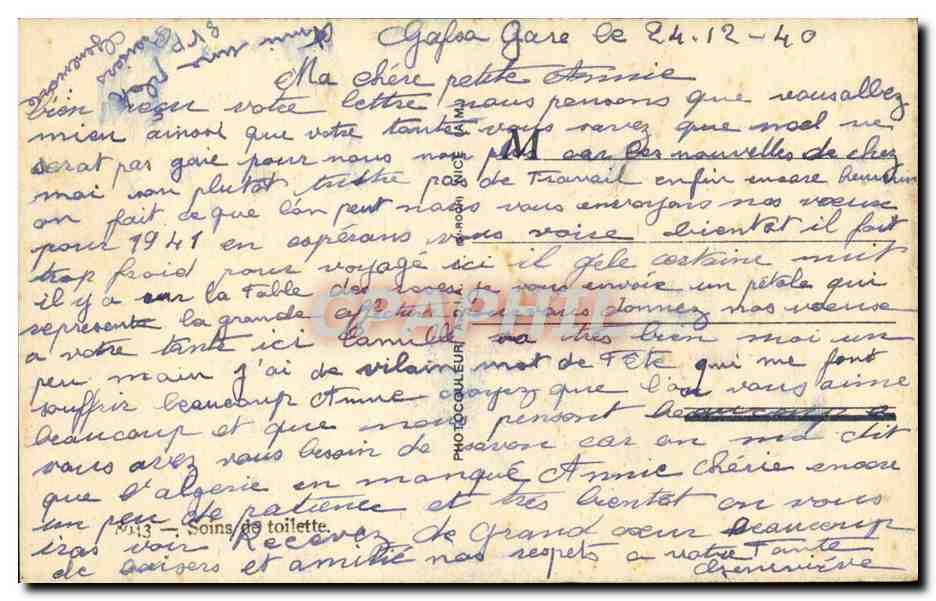 Gafsa Gare le 24.12-40
Ma chére petite Annie
bien reçu votre lettre nous pensons que vous allez
mieu ainssi que votre tante vous savez que noel ne
serat pas gaie pour nous non plus car les nouvelles de chez
moi son plutot triste pas de Travail enfin encore
on fait ce que l'on peut nous vous envoyons nos voeux
pour 1941 en espérans vous voire bientat il fait
trop froid pour voyagé ici il gèle certaine nuit
il y a sur la Table des roses je vous envoie un pétale qui
represente la grande affection vous donnez nos voeuse
a votre tante ici famille va très bien moi un
peu main j'ai de vilain mot de Tête qui me font
souffrir beaucoup Annie croyez que l'on vous aime
beaucoup et que nous pensont
vous avez vous besoin de savon car on ma dit
que l'algerie en manque Annie Chérie encore
un peu de patience et très bientot on vous
iras voir Recevez de Grand coeur beaucoup
de baisers et amitié nos respets a votre Tante
Genevieve
Geneviève
PHOTOCOULEUR
NICE
M
13 - Soins de toilette.
CPAPHIL